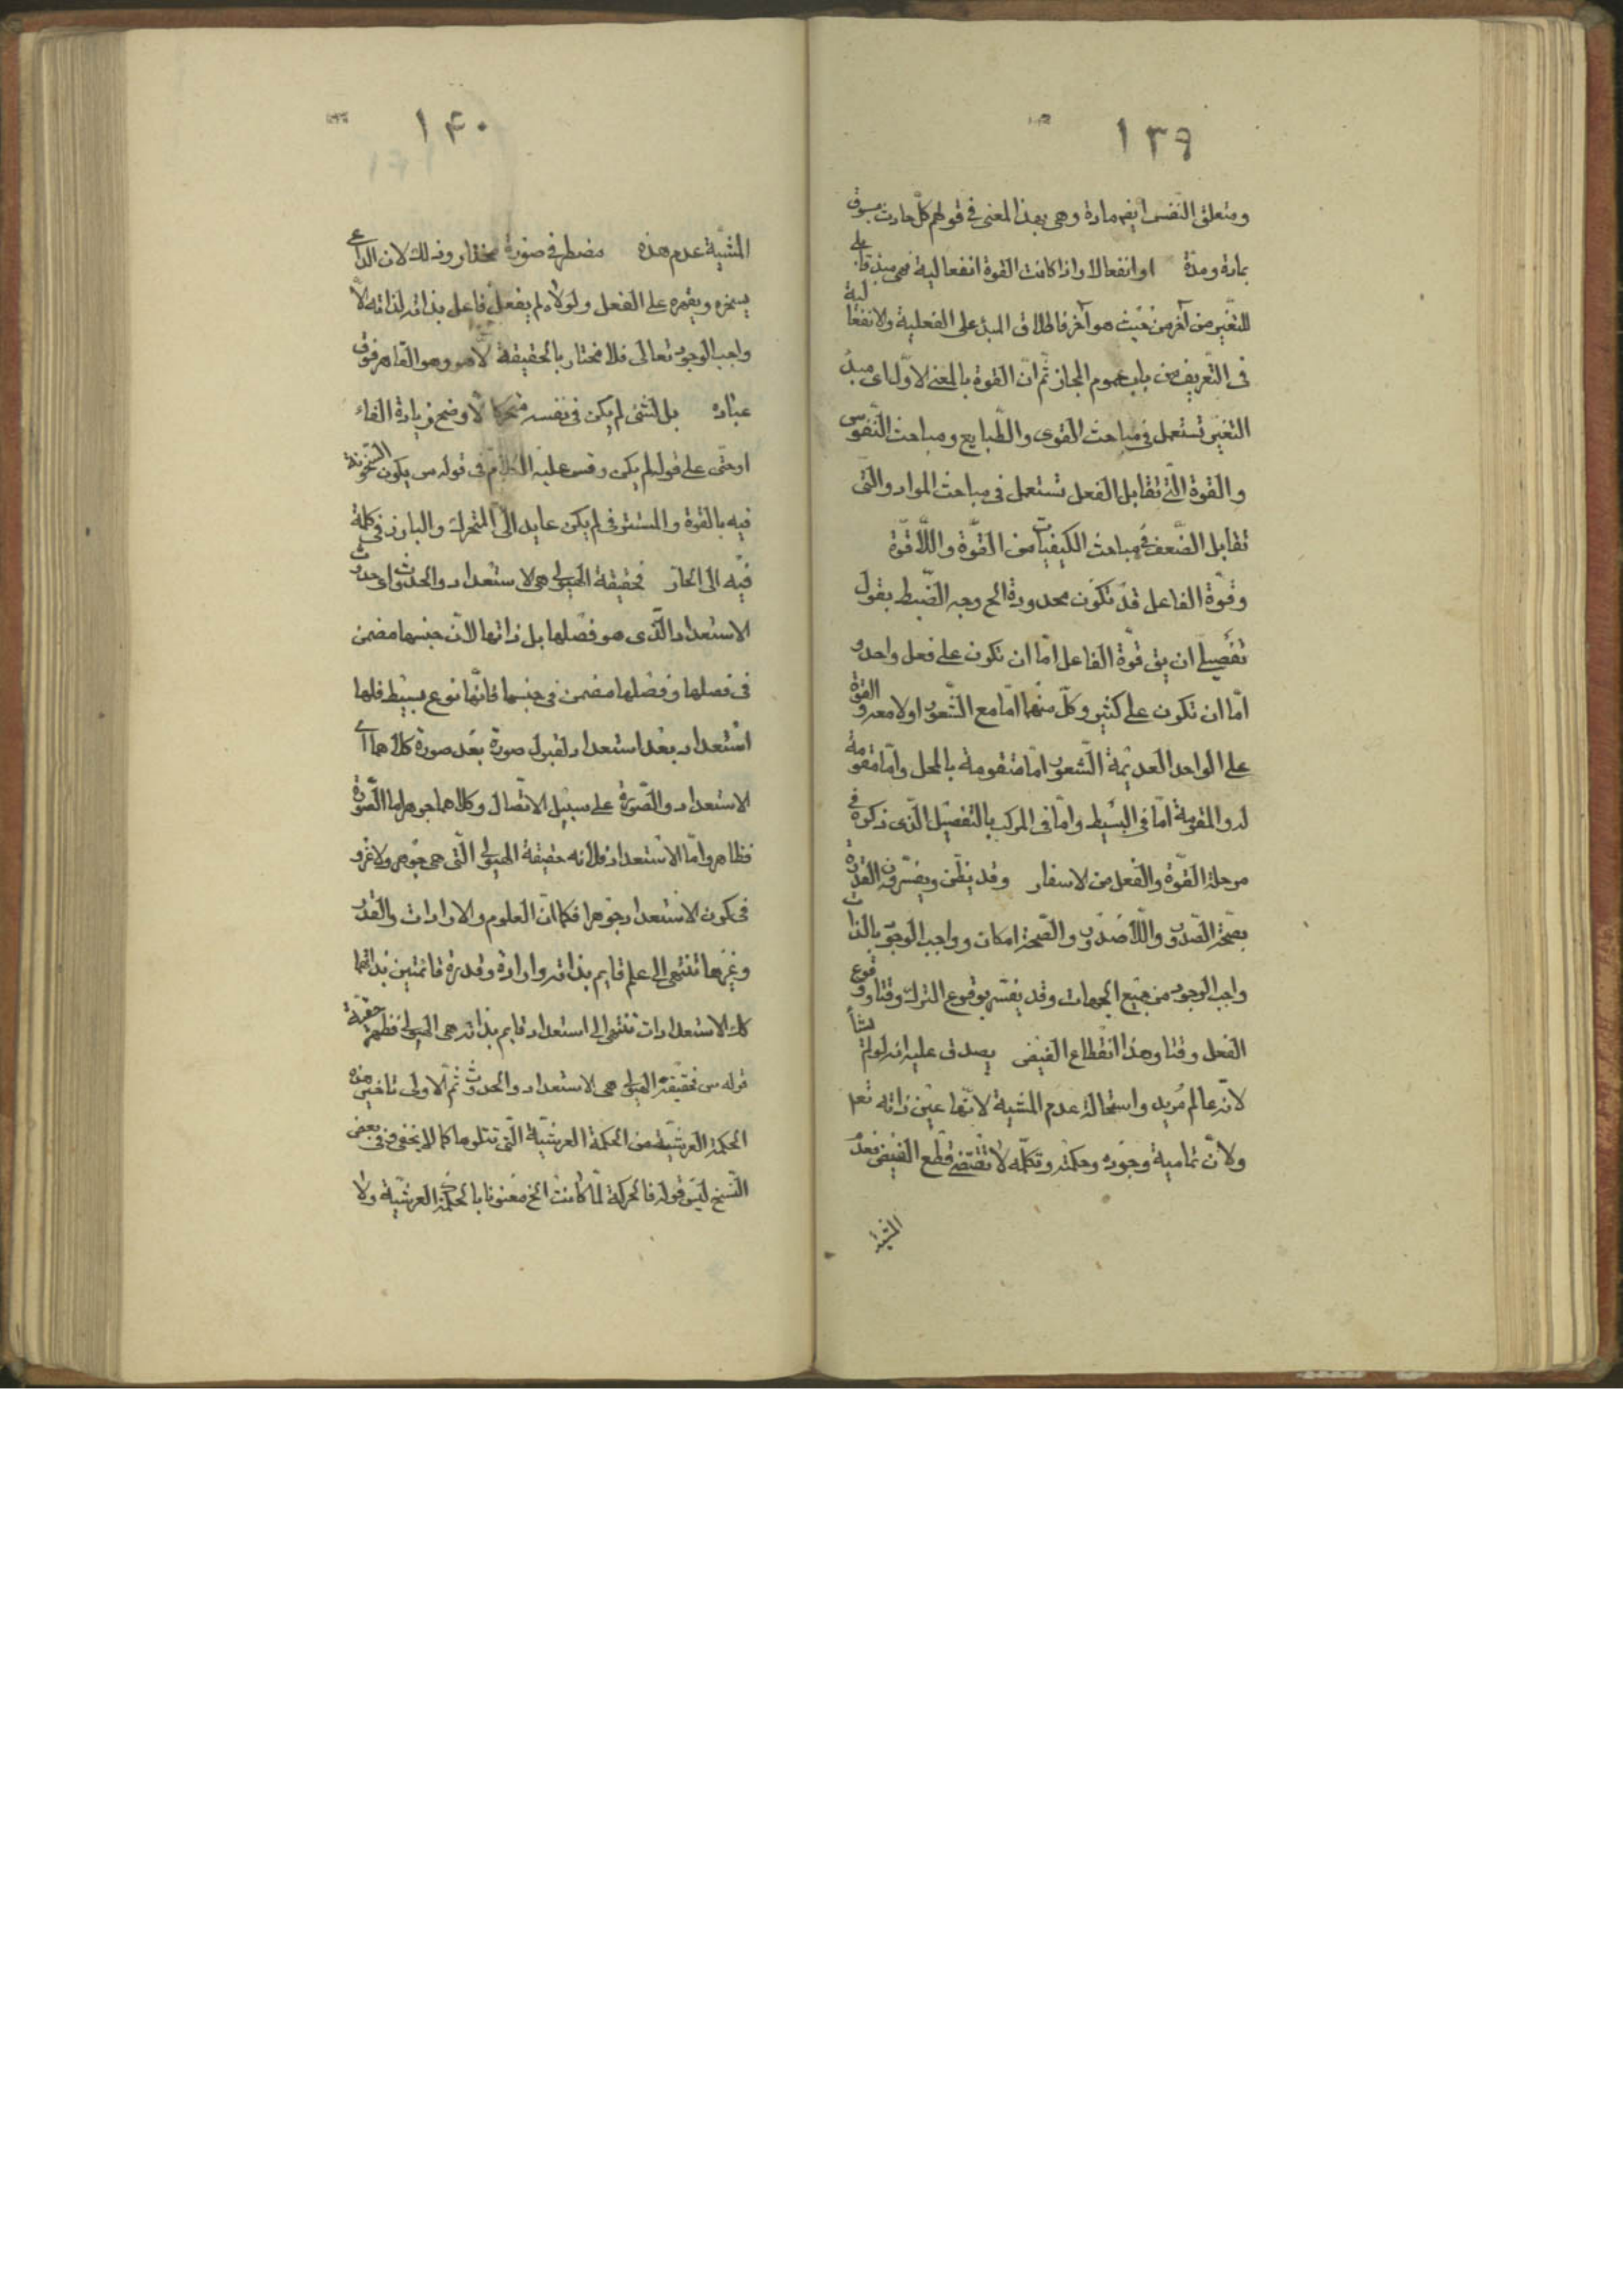 ١٣٩
ومتعلق النفس ايضا مادة وهى بهذا المعنى فى قولهم كل حادث مسبوق
بمادة ومدة او انفعالا واذا كانت القوة انفعالية فهى مبدء قابلية
للتغير من آخر من حيث هو آخر فاطلاق المبدء على الفعلية والانفعالية
فى التعريف من باب عموم المجاز ثم ان القوة بالمعنى الاول اى مبدء
التغير تستعمل فى مباحث القوى والطبايع ومباحث النفوس
والقوة التى تقابل الفعل تستعمل فى مباحث المواد والتى
تقابل الضعف فى مباحث الكيفيات من القوة واللاقوة
وقوة الفاعل قد تكون محدودة الخ وجه الضبط بقول
تفصيلى ان يق قوة الفاعل اما ان تكون على فعل واحد و
اما ان تكون على كثير وكل منهما اما مع الشعور او لا معه والقوة
على الواحد العديمة الشعور اما متقومة بالمحل واما مقومة
له والمقومة اما فى البسيط واما فى المركب بالتفصيل الذى ذكره فى
مرحلة القوة والفعل من الاسفار وقد يظن ويفسرون القدرة
بصحة الصدور واللاصدور والصحة امكان وواجب الوجود بالذات
واجب الوجود من جميع الجهات وقد يفسر بوقوع الترك وقتا ووقوع
الفعل وقتا وهذا انقطاع الفيض يصدق عليه انه لو لم يشأ
لانه عالم مريد واستحالة عدم المشية لانها عين ذاته تعا
ولان تمامية وجوده وحكمته وتكلمه لا تقتضى قطع الفيض فعدم
المشية
١۴٠
المشية عدم هذه مضطر فى صورة مختار وذلك لان الداعى
يسخره ويقهره على الفعل ولولاه لم يفعل فاعل بذاته لذاته الا
واجب الوجود تعالى فلا مختار بالحقيقة الا هو وهو القاهر فوق
عباده بل لشئ لم يكن فى نفسه متحركا الاوضح زيادة الفاء
او حتى على قوله لم يكن وقس عليه الكلام فى قوله س يكون السخونة
فيه بالقوة والمستتر فى لم يكن عايد الى المتحرك والبارز فى كلمة
فيه الى الحار فحقيقة الهيولى هى الاستعداد والحدوث اى حدوث
الاستعداد الذى هو فصلها بل ذاتها لان جنسها مضمن
فى فصلها وفصلها مضمن فى جنسها فانها نوع بسيط فلها
استعداد بعد استعداد لقبول صورة بعد صورة كلاهما اى
الاستعداد والصورة على سبيل الاتصال وكلاهما جوهر اما الصورة
فظاهر واما الاستعداد فلانه حقيقة الهيولى التى هى جوهر ولا غرو
فى كون الاستعداد جوهرا فكما ان العلوم والارادات والقدر
وغيرها تنتهى الى علم قايم بذاته وارادة وقدرة قائمتين بذاتهما
كك الاستعدادات تنتهى الى استعداد قايم بذاته هى الهيولى فظهر حقية
قوله س فحقيقة الهيولى هى الاستعداد والحدوث ثم الاولى تاخير هذه
الحكمة العرشية من الحكمة العرشية التى تتلوها كما لا يخفى وفى بعض
النسخ ليس قوله فالحركة لما كانت الخ معنونا بالحكمة العرشية ولا